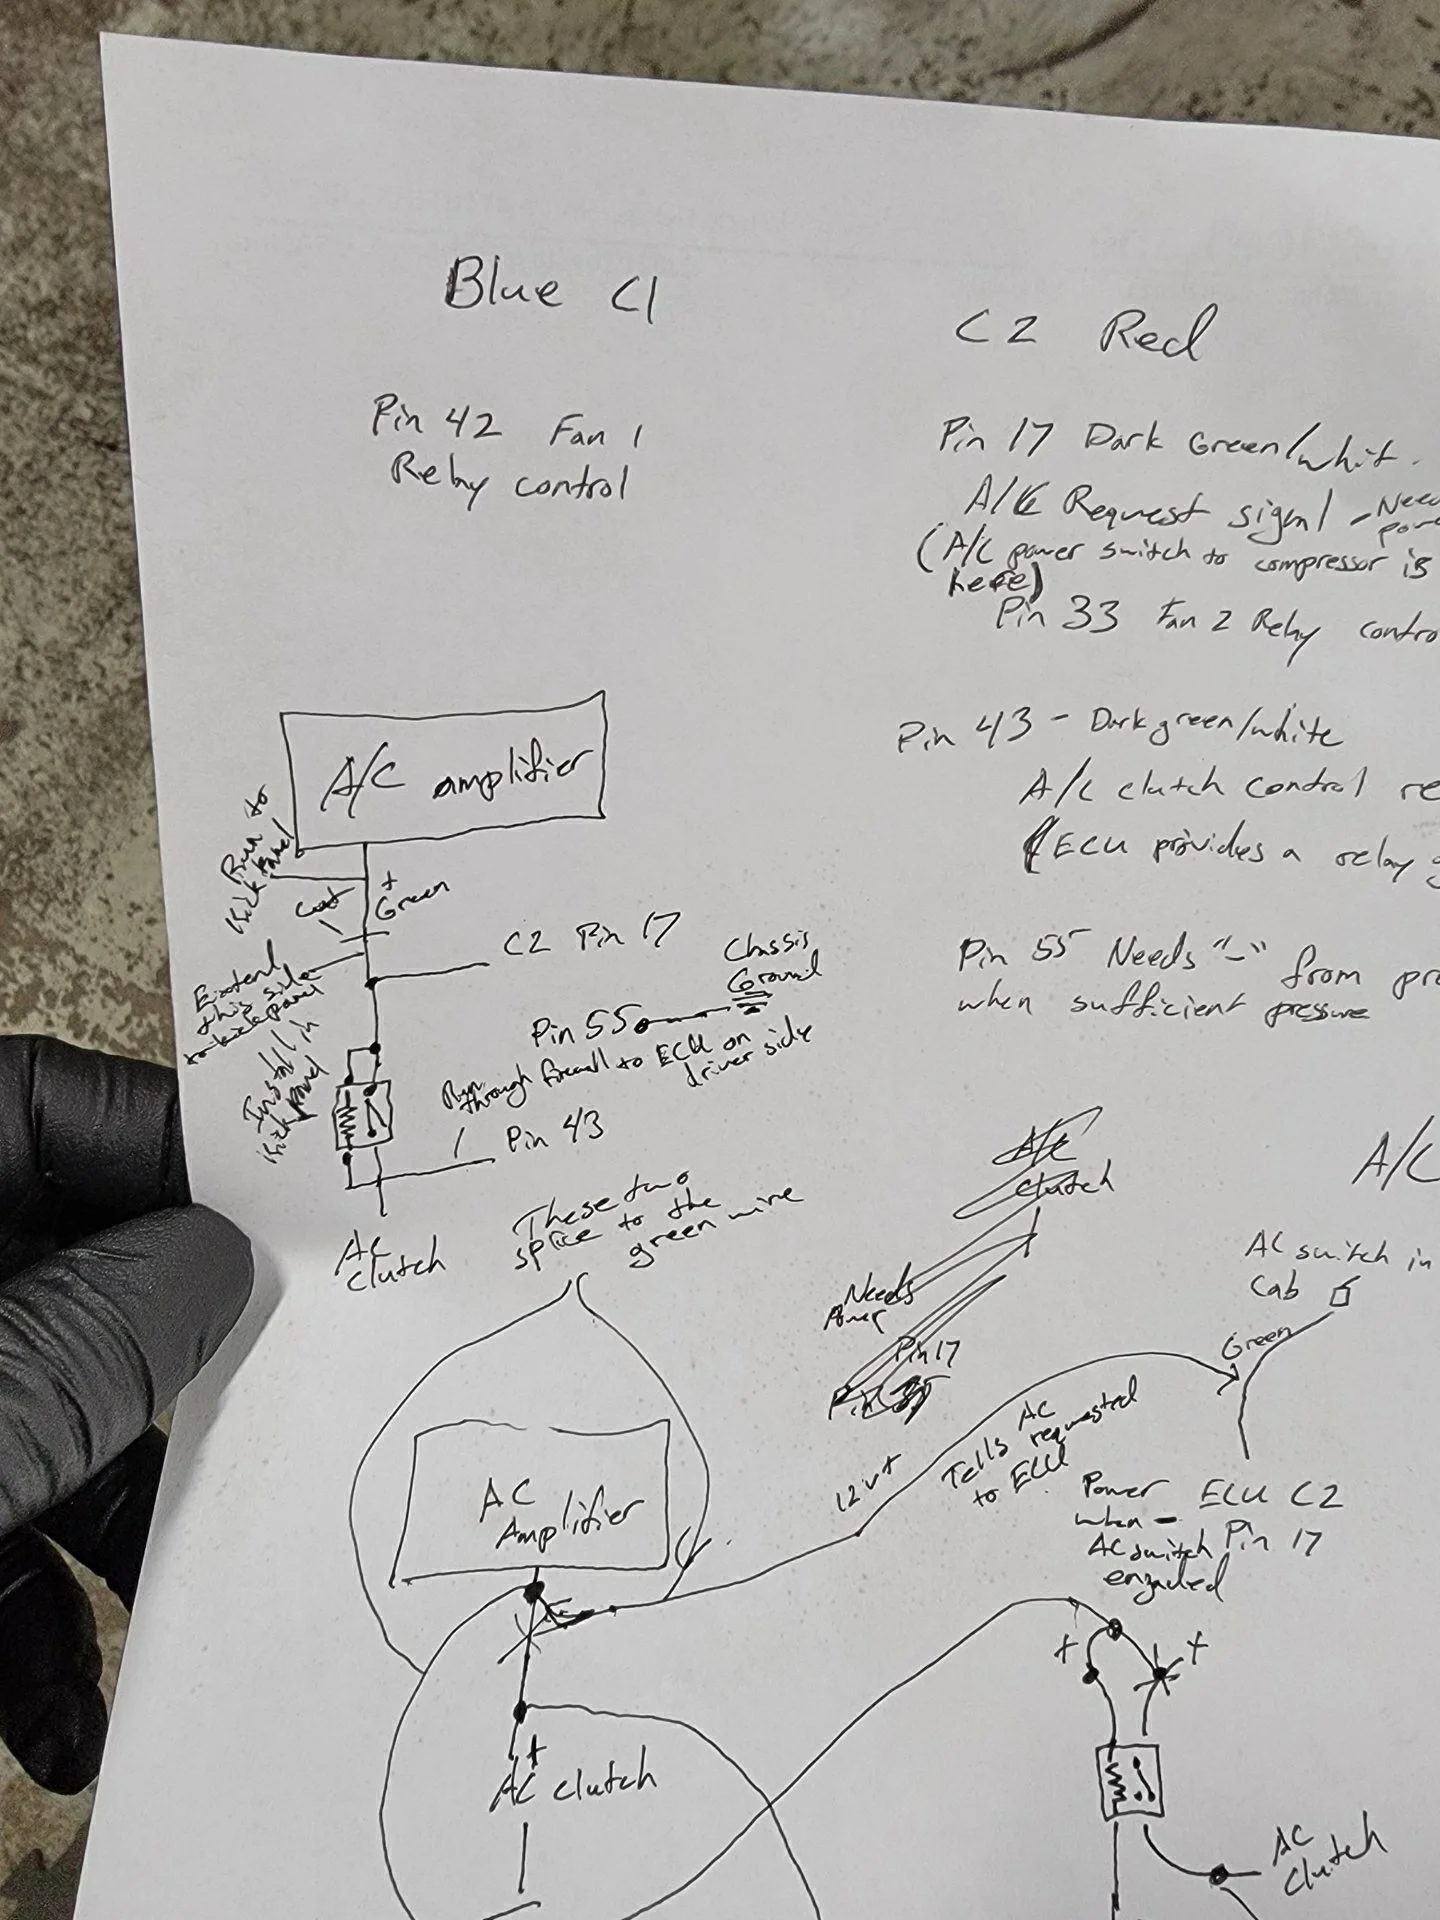 Blue C1
Pin 42 Fan 1
Relay control
C2 Red
Pin 17 Dark Green/whit
A/C Request signal - Need
pow
(A/C power switch to compressor is
here)
Pin 33 Fan 2 Relay contro
Pin 43 - Dark green/white
A/C clutch control re
(ECU provides a relay g
Pin 55 Needs "-" from pre
when sufficient pressure
A/C amplifier
Run to
Kick Panel
cut
+
Green
C2 Pin 17
Extend
this side
to kick panel
Install in
Kick panel
Chassis
Ground
Pin 55
Run
through firewall to ECU on
driver side
Pin 43
AC
clutch
These two
splice to the
green wire
A/C
clutch
Needs
Power
Pin 17
A/C
AC switch in
Cab
Green
12v+
Tells AC
requested
to ECU
Power ECU C2
when -
AC switch Pin 17
engaded
AC
Amplifier
+
AC clutch
+ +
AC
Clutch